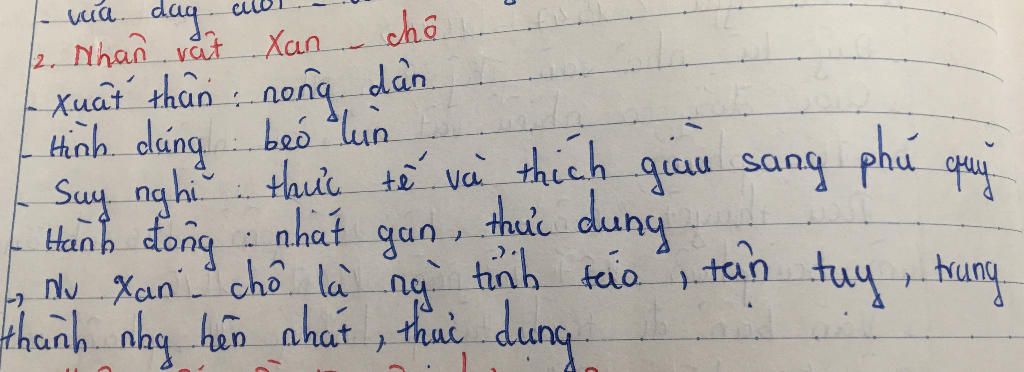 - vừa dạy
2. Nhân vật Xan - chô
- Xuất thân : nông dân
- Hình dáng : béo lùn
- Suy nghĩ : thực tế và thích giàu sang phú quý
- Hành động : nhát gan, thực dụng
→ NV Xan - chô là ng` tỉnh táo, tận tụy, trung
thành nhg hèn nhát, thực dụng